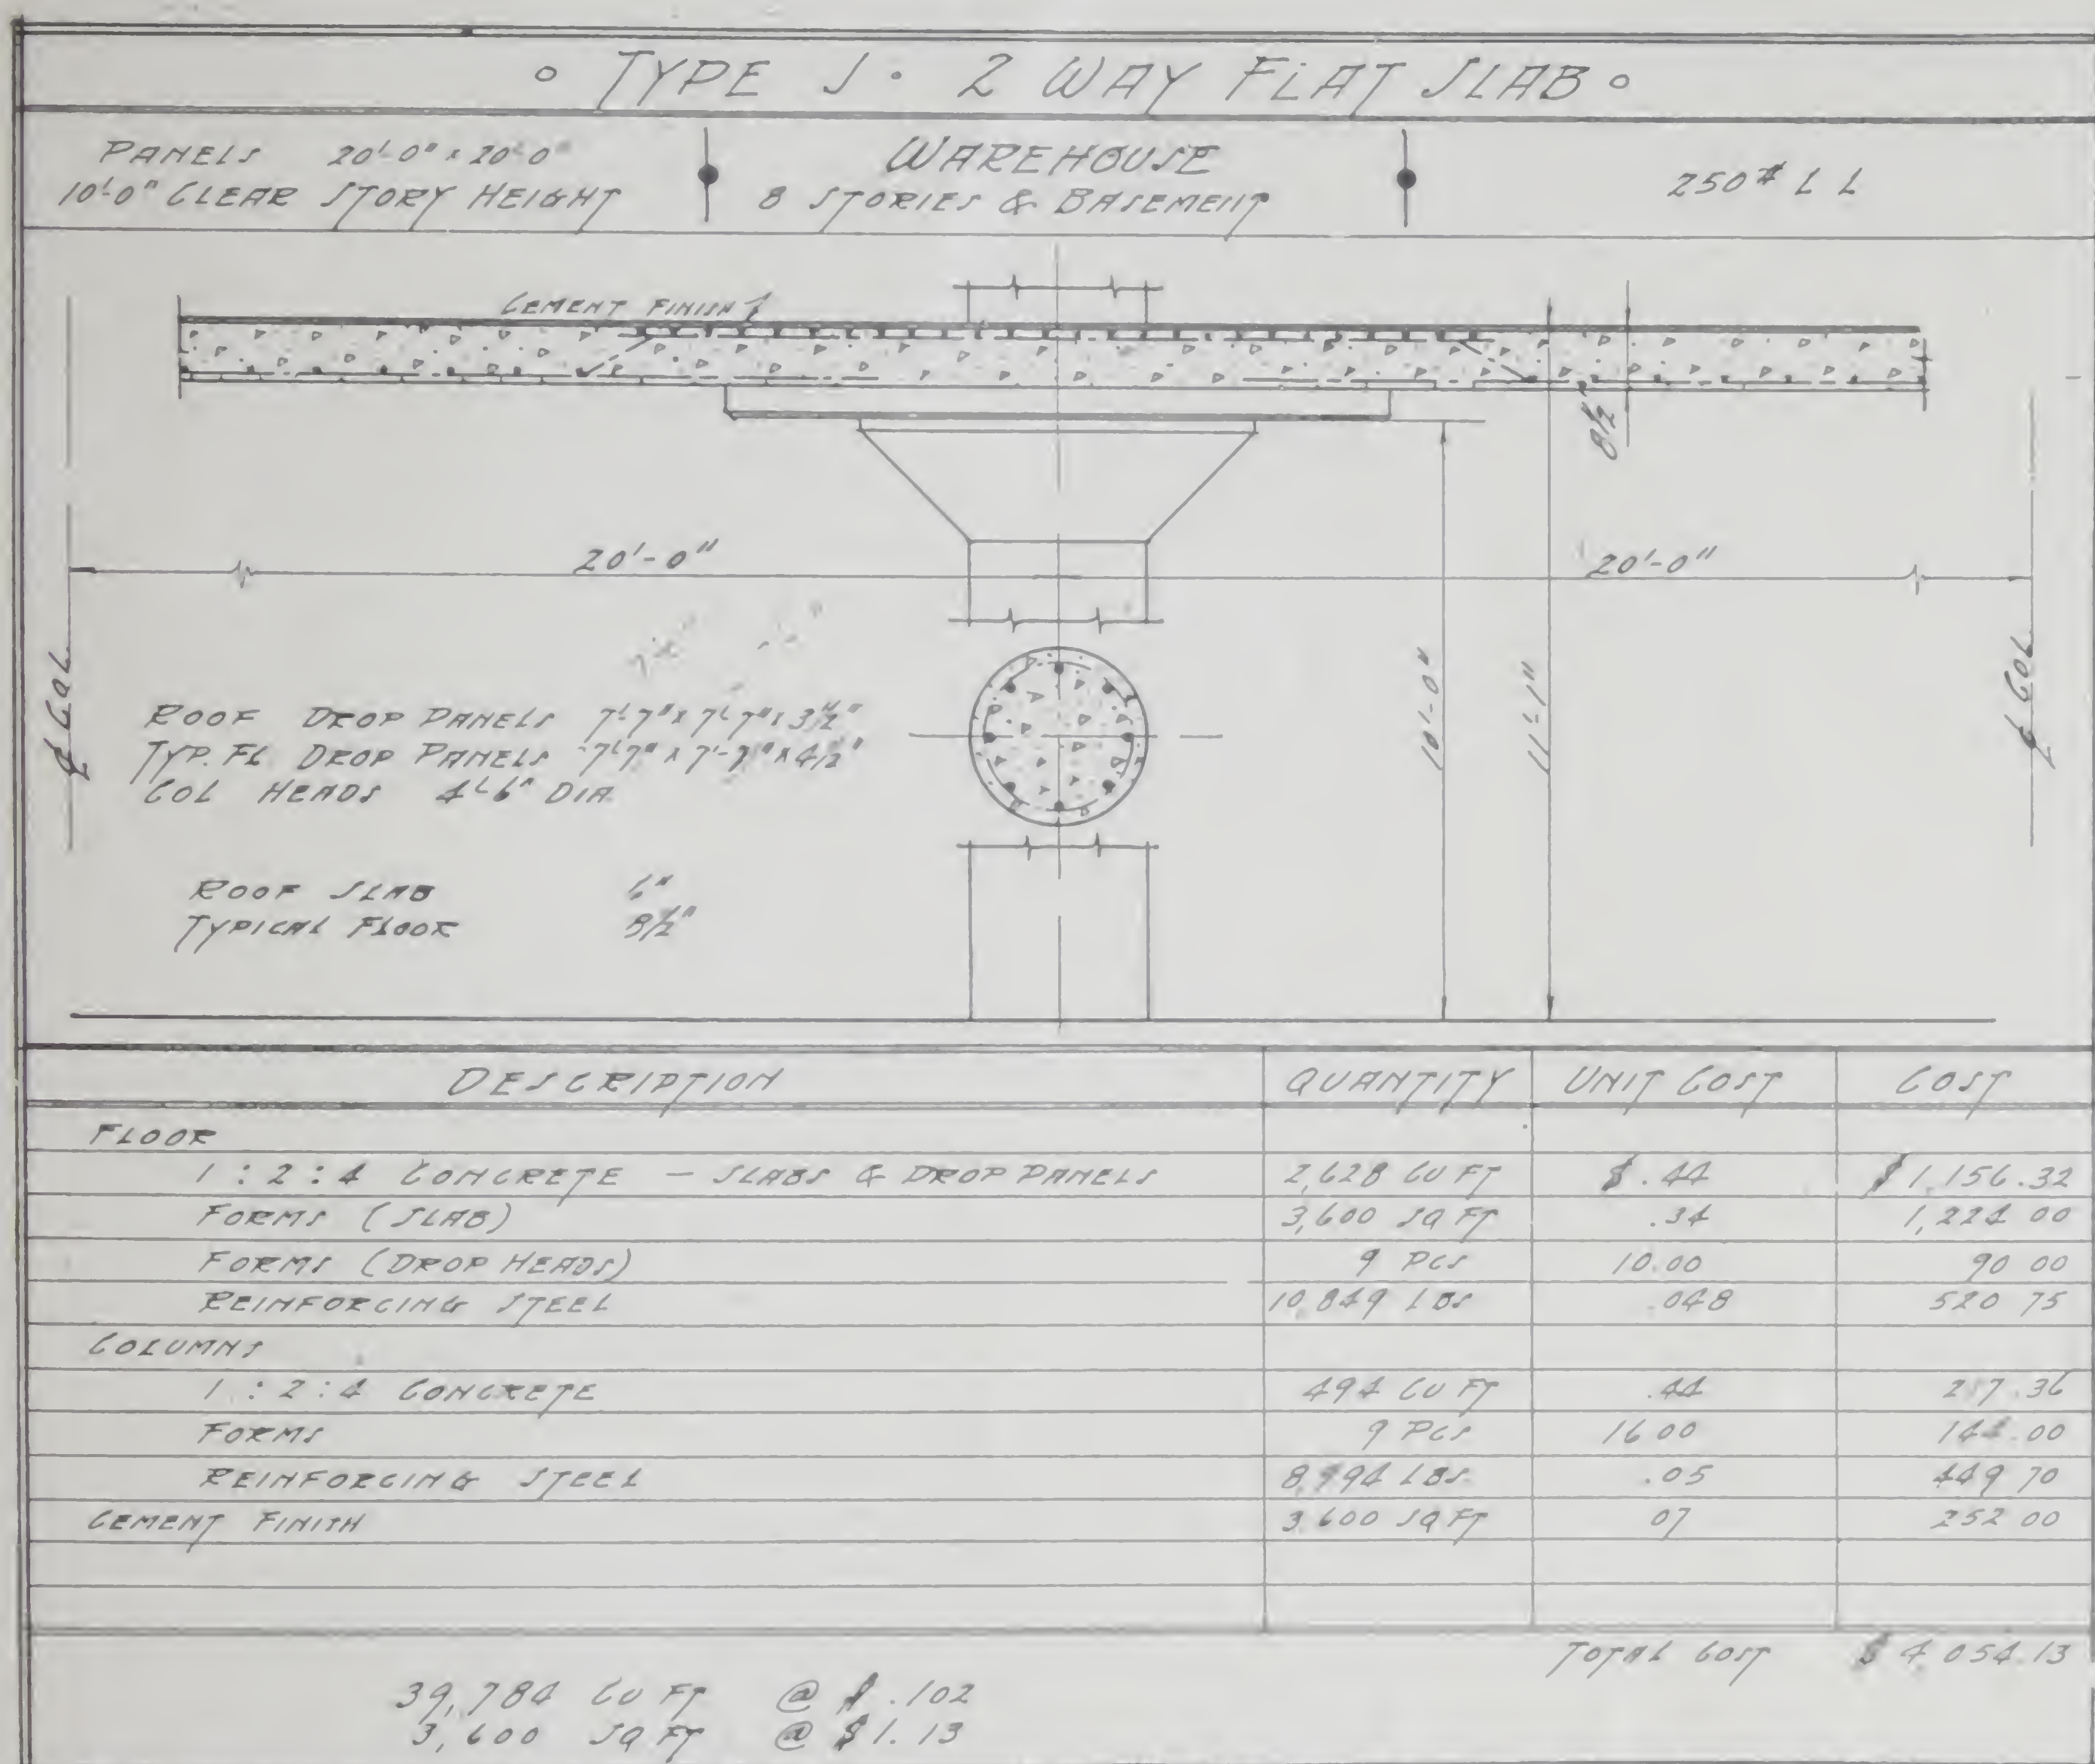 ° TYPE J · 2 WAY FLAT SLAB °
PANELS 20'-0" x 20'-0"
10'-0" CLEAR STORY HEIGHT
WAREHOUSE
8 STORIES & BASEMENT
250# L L
CEMENT FINISH
8½"
20'-0"
20'-0"
10'-0"
11'-1"
℄ COL
℄ COL
ROOF DROP PANELS 7'-7" x 7'-7" x 3½"
TYP. FL DROP PANELS 7'-7" x 7'-7" x 4½"
COL HEADS 4'-6" DIA
ROOF SLAB 6"
TYPICAL FLOOR 8½"
DESCRIPTION QUANTITY UNIT COST COST
FLOOR
1 : 2 : 4 CONCRETE - SLABS & DROP PANELS 2,628 CU FT $ .44 $ 1,156.32
FORMS (SLAB) 3,600 SQ FT .34 1,224 00
FORMS (DROP HEADS) 9 PCS 10.00 90 00
REINFORCING STEEL 10,849 LBS .048 520 75
COLUMNS
1 : 2 : 4 CONCRETE 494 CU FT .44 217.36
FORMS 9 PCS 16 00 144.00
REINFORCING STEEL 8,994 LBS. .05 449 70
CEMENT FINISH 3,600 SQ FT 07 252 00
TOTAL COST $ 4 054.13
39,784 CU FT @ $ .102
3,600 SQ FT @ $1.13